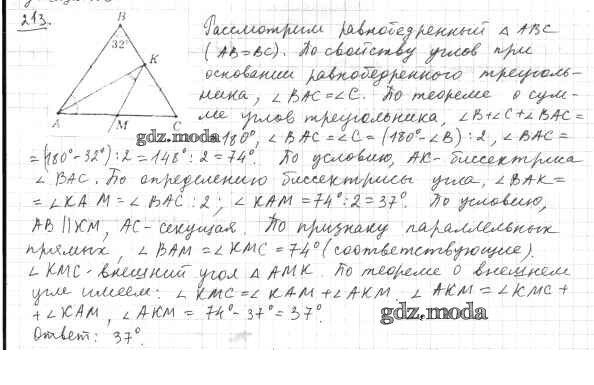 213.
B
32°
K
A
M
C
Рассмотрим равнобедренный △ ABC
(AB=BC). По свойству углов при
основании равнобедренного треуголь-
ника, ∠BAC=∠C. По теореме о сум-
ме углов треугольника, ∠B+∠C+∠BAC=
gdz.moda 180°, ∠BAC=∠C=(180°-∠B):2, ∠BAC=
=(180°-32°):2=148°:2=74°. По условию, AK-биссектриса
∠BAC. По определению биссектрисы угла, ∠BAK=
=∠KAM=∠BAC:2; ∠KAM=74°:2=37°. По условию,
AB||KM, AC-секущая. По признаку параллельных
прямых, ∠BAM=∠KMC=74° (соответствующие).
∠KMC-внешний угол △AMK. По теореме о внешнем
угле имеем: ∠KMC=∠KAM+∠AKM. ∠AKM=∠KMC+
+∠KAM, ∠AKM=74°-37°=37°.
gdz.moda
Ответ: 37°.